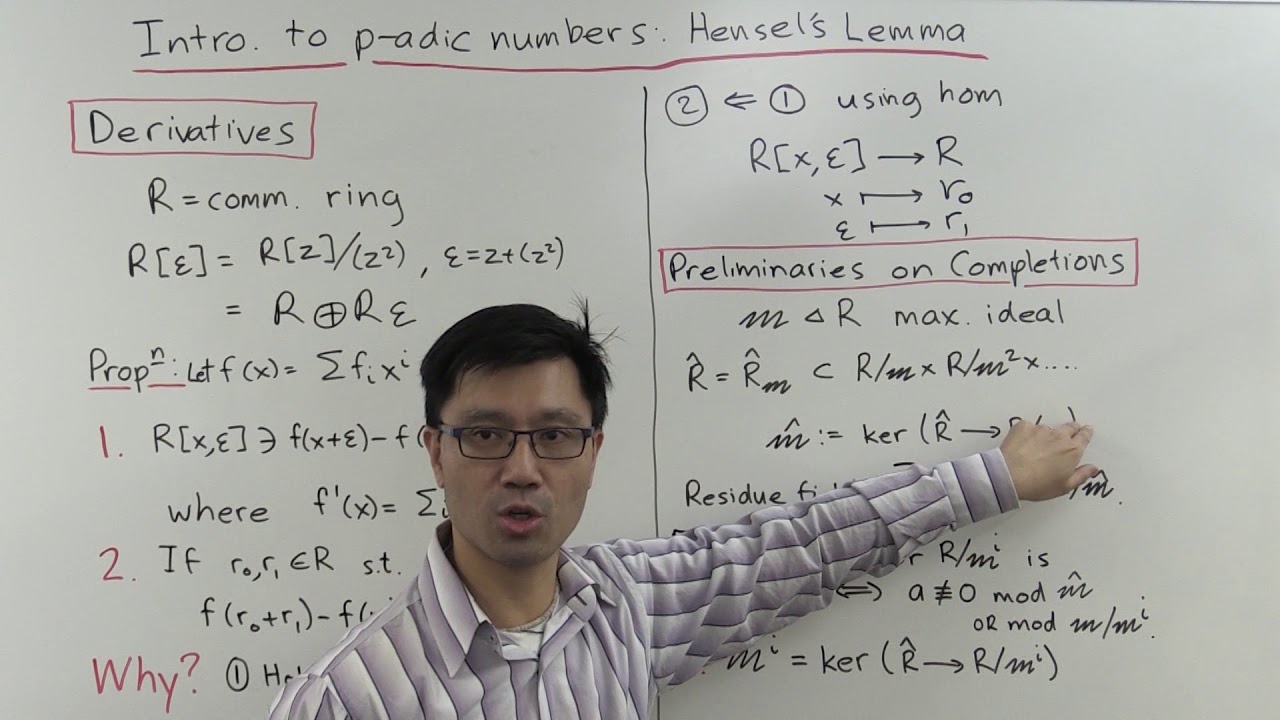 Intro. to p-adic numbers: Hensel's Lemma
Derivatives
R = comm. ring
R[ε] = R[z]/(z²), ε=z+(z²)
= R⊕Rε
Propⁿ: Let f(x) = Σ fᵢxⁱ
1. R[x,ε] ∋ f(x+ε)−f(
where f'(x) = Σ
2. If r₀,r₁ ∈R s.t.
f(r₀+r₁)−f(
Why? ①
② ⇐ ① using hom
R[x,ε] ⟶ R
x ⟼ r₀
ε ⟼ r₁
Preliminaries on Completions
m ◃ R max. ideal
R̂ = R̂ₘ ⊂ R/m × R/m² × ....
m̂ := ker (R̂ ⟶ R/
Residue /m̂.
R/mⁱ is
⟺ a ≢ 0 mod m̂
OR mod m/mⁱ.
mⁱ = ker (R̂ ⟶ R/mⁱ)